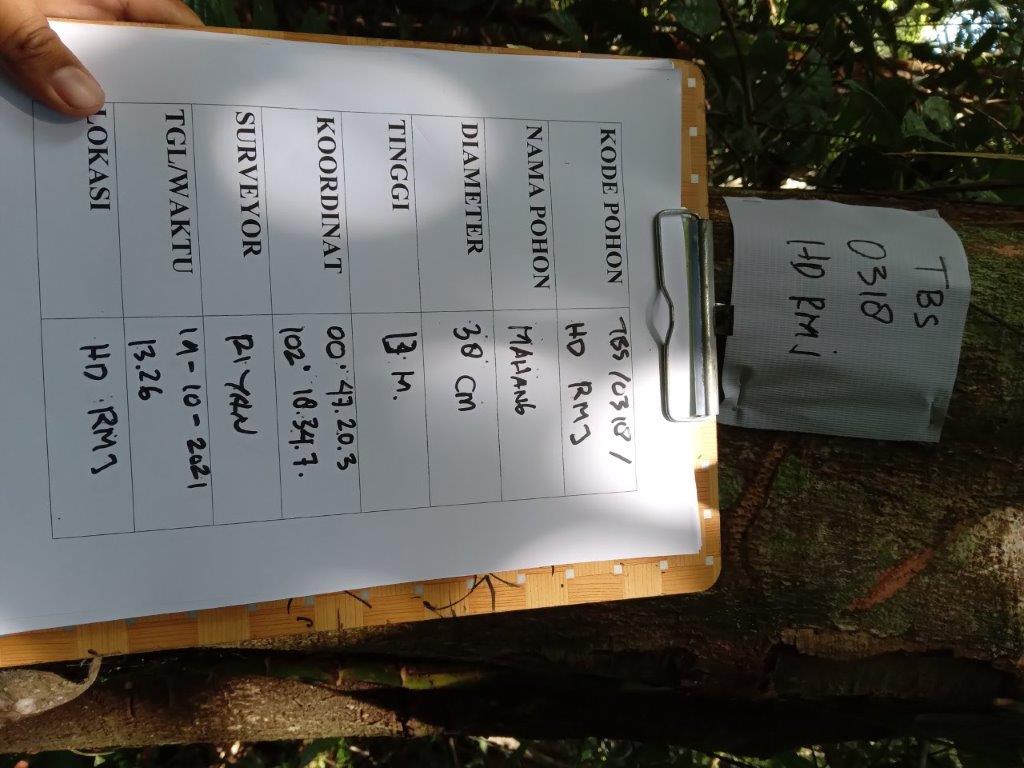 TBS
0318
HD RMJ
KODE POHON TBS /0318/
HD RMJ
NAMA POHON MAHANG
DIAMETER 38 CM
TINGGI M.
KOORDINAT 00° 47.20.3
102° 18.34.7.
SURVEYOR RIYAN
TGL/WAKTU 19-10-2021
13.26
LOKASI HD RMJ